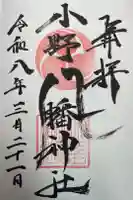 奉拝
小野八幡神社
令和八年三月二十一日